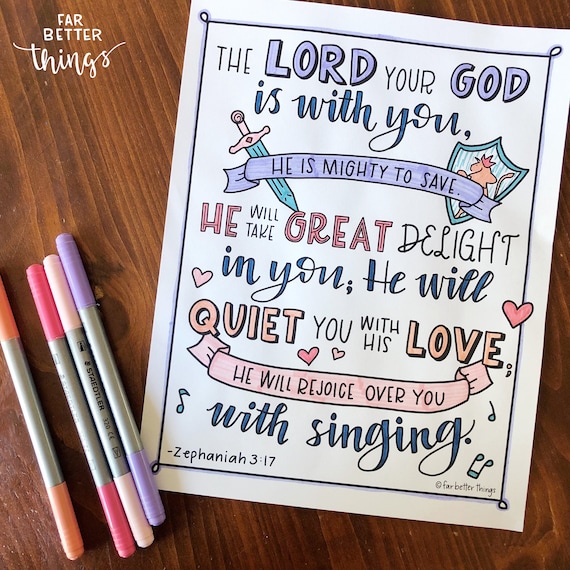 FAR
BETTER
things
THE LORD YOUR GOD
is with you,
HE IS MIGHTY TO SAVE.
HE WILL TAKE GREAT DELIGHT
in you; He will
QUIET YOU WITH HIS LOVE;
HE WILL REJOICE OVER YOU
with singing.
-Zephaniah 3:17
© far better things
STAEDTLER